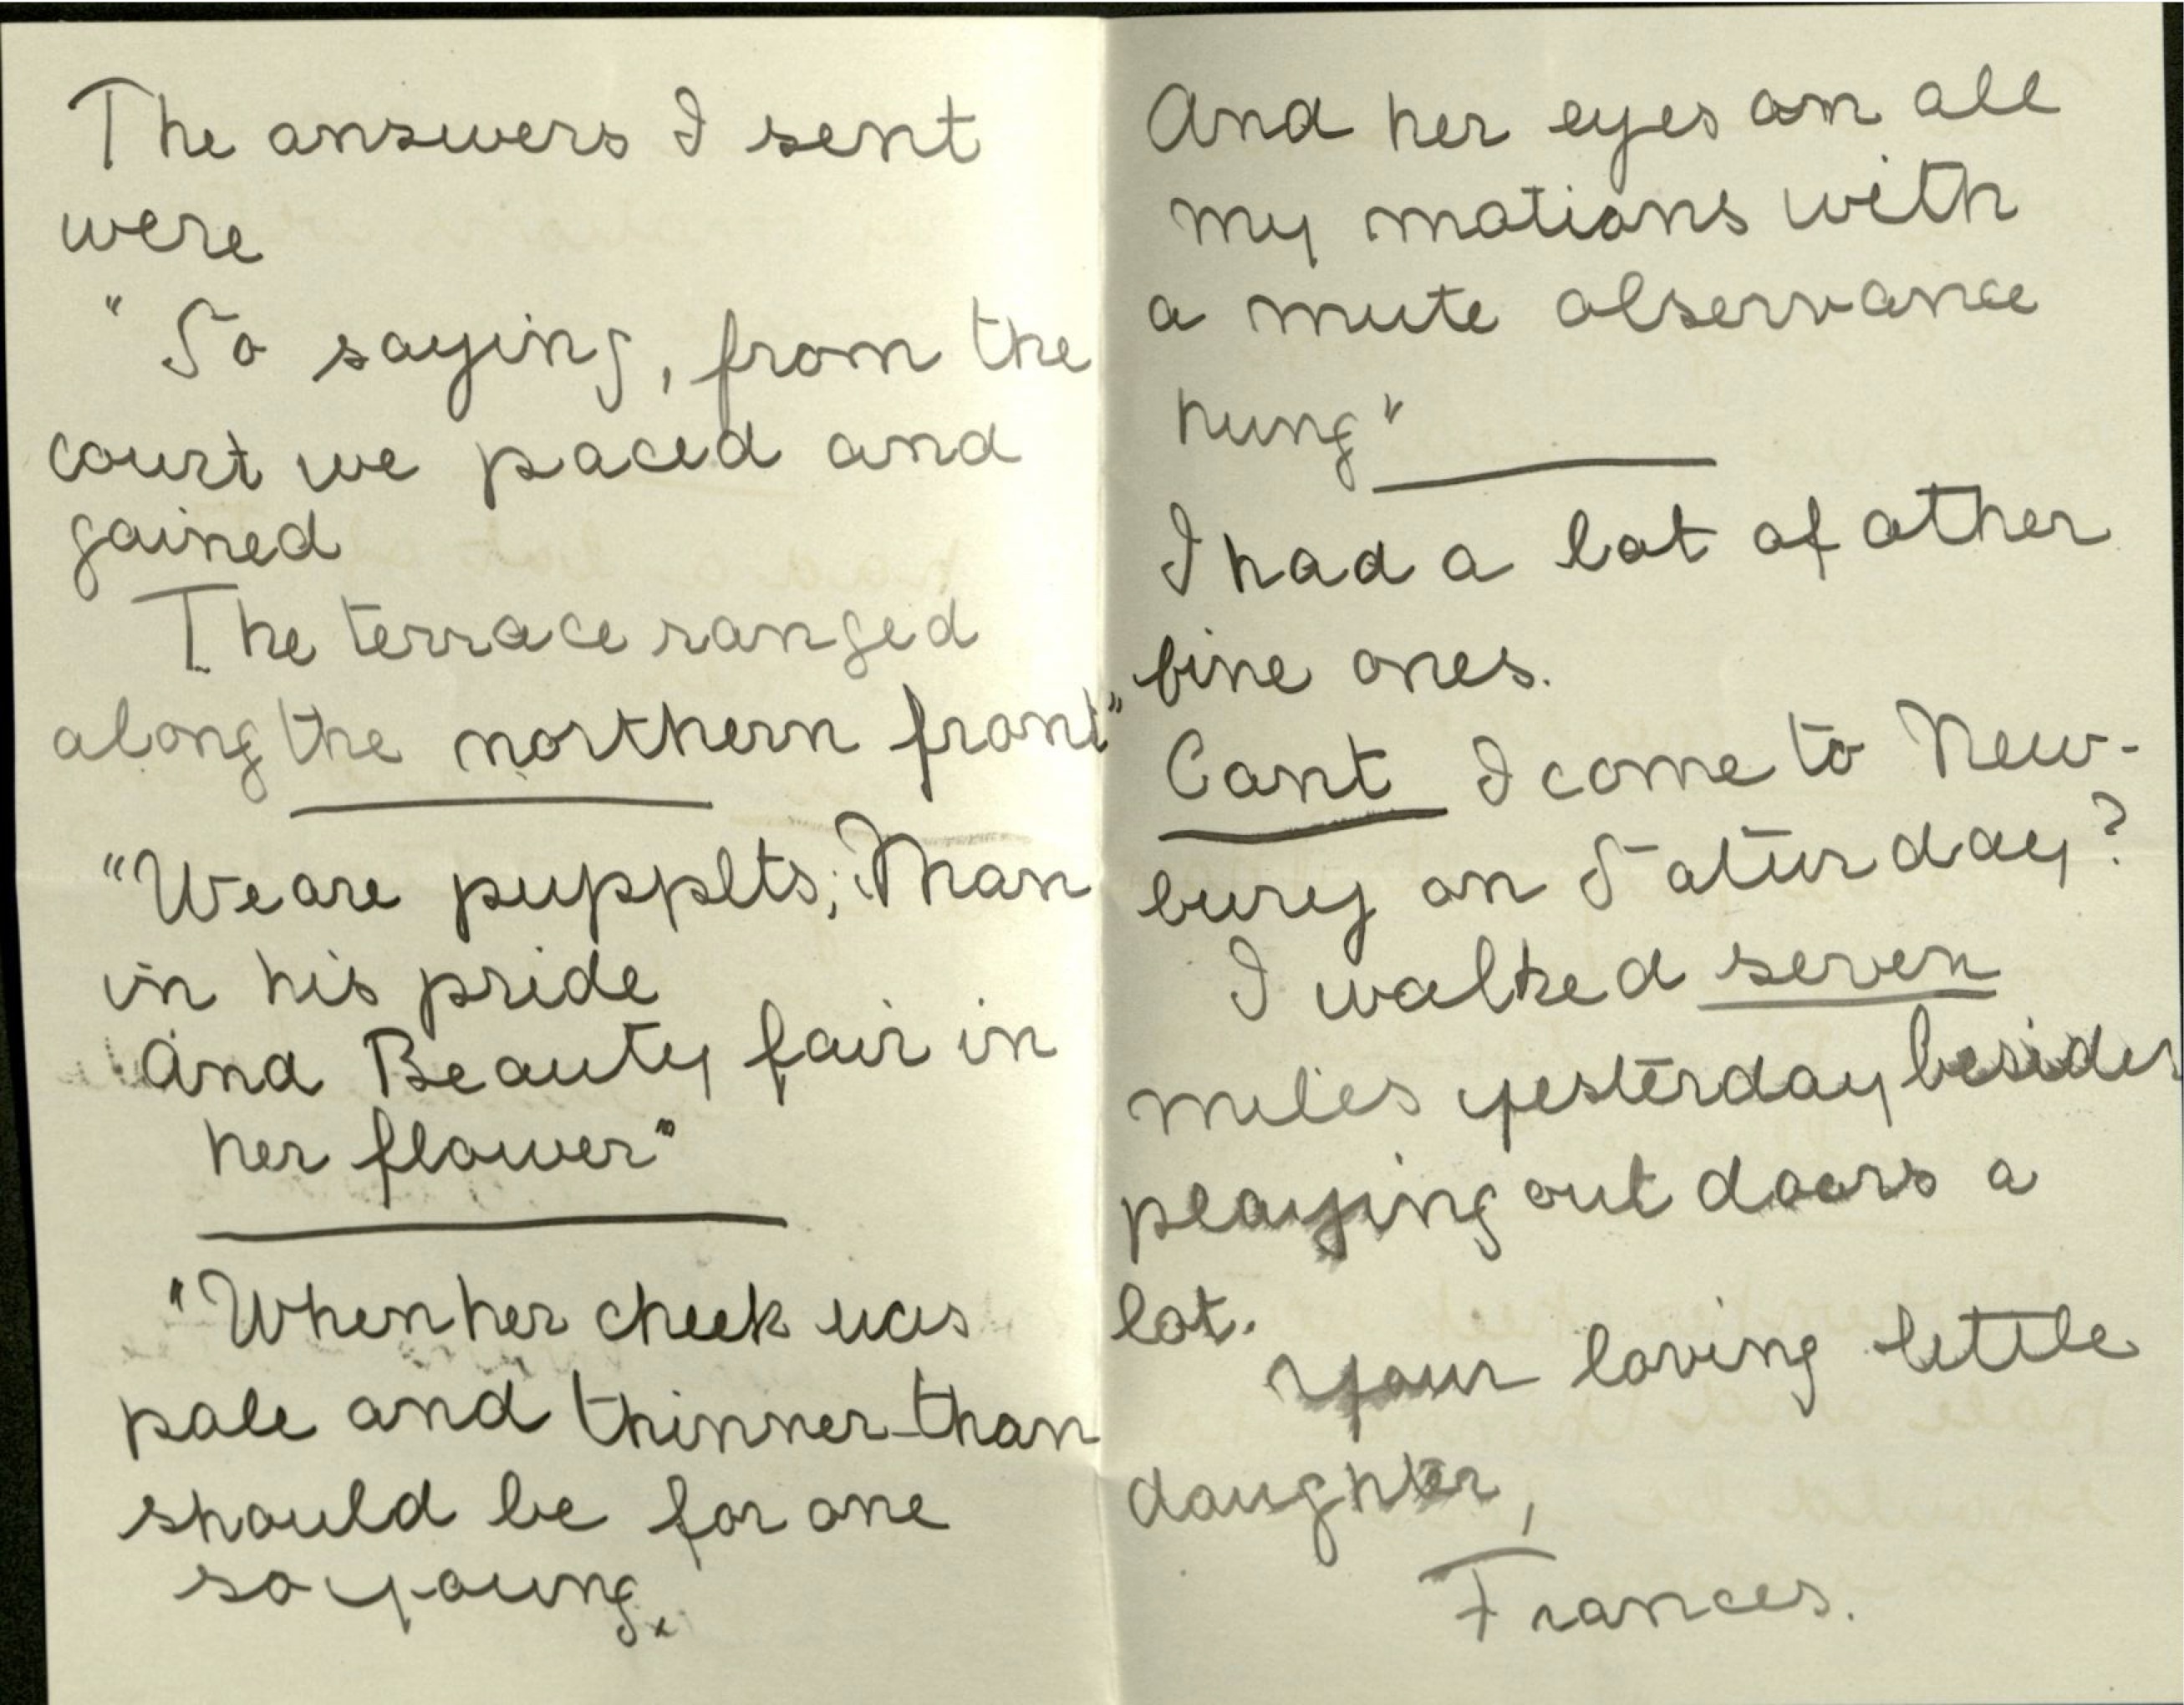 The answers I sent
were
"So saying, from the
court we paced and
gained
The terrace ranged
along the northern front"
"We are pupplts; Man
in his pride
And Beauty fair in
her flower"
"When her cheek was
pale and thinner than
should be for one
so young,
And her eyes on all
my motions with
a mute observance
hung"
I had a lot of other
fine ones.
Cant I come to New-
bury on Saturday?
I walked seven
miles yesterday besides
playing out doors a
lot.
Your loving little
daughter,
Frances.